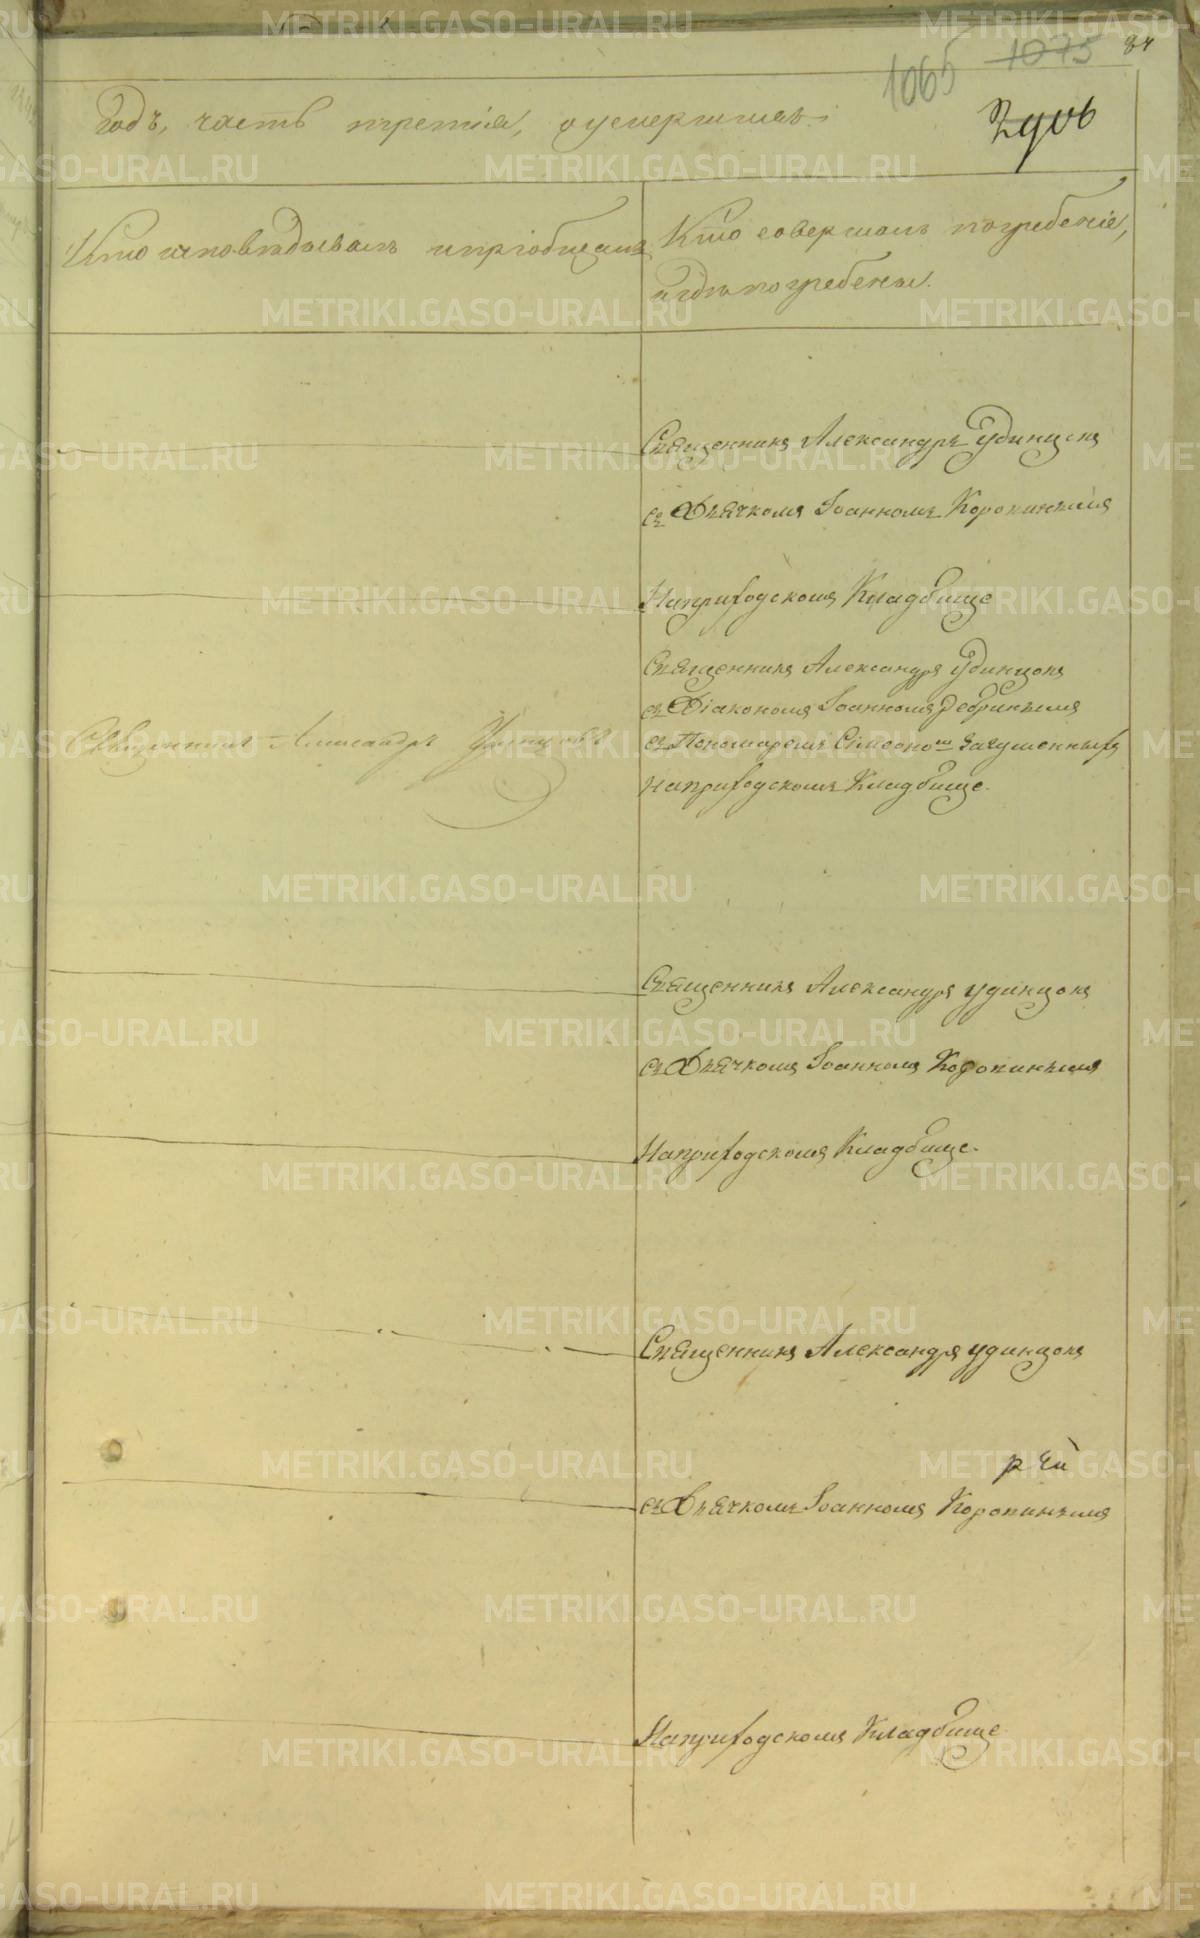 1065 1075 84
Годъ, часть третія, о умершихъ.
Кто исповѣдывалъ и пріобщалъ
Кто совершалъ погребеніе,
и гдѣ погребены.
Священникъ Александръ Удинцовъ
съ Дьячкомъ Іоанномъ Коровинымъ
На приходскомъ Кладбище
Священникъ Александръ Удинцовъ
съ Діакономъ Іоанномъ
Священникъ Александръ Удинцовъ
съ Пономаремъ Сімеономъ
На приходскомъ Кладбище.
Священникъ Александръ Удинцовъ
съ Дьячкомъ Іоанномъ Коровинымъ
На приходскомъ Кладбище.
Священникъ Александръ Удинцовъ
съ Дьячкомъ Іоанномъ Коровинымъ
На приходскомъ Кладбище
METRIKI.GASO-URAL.RU